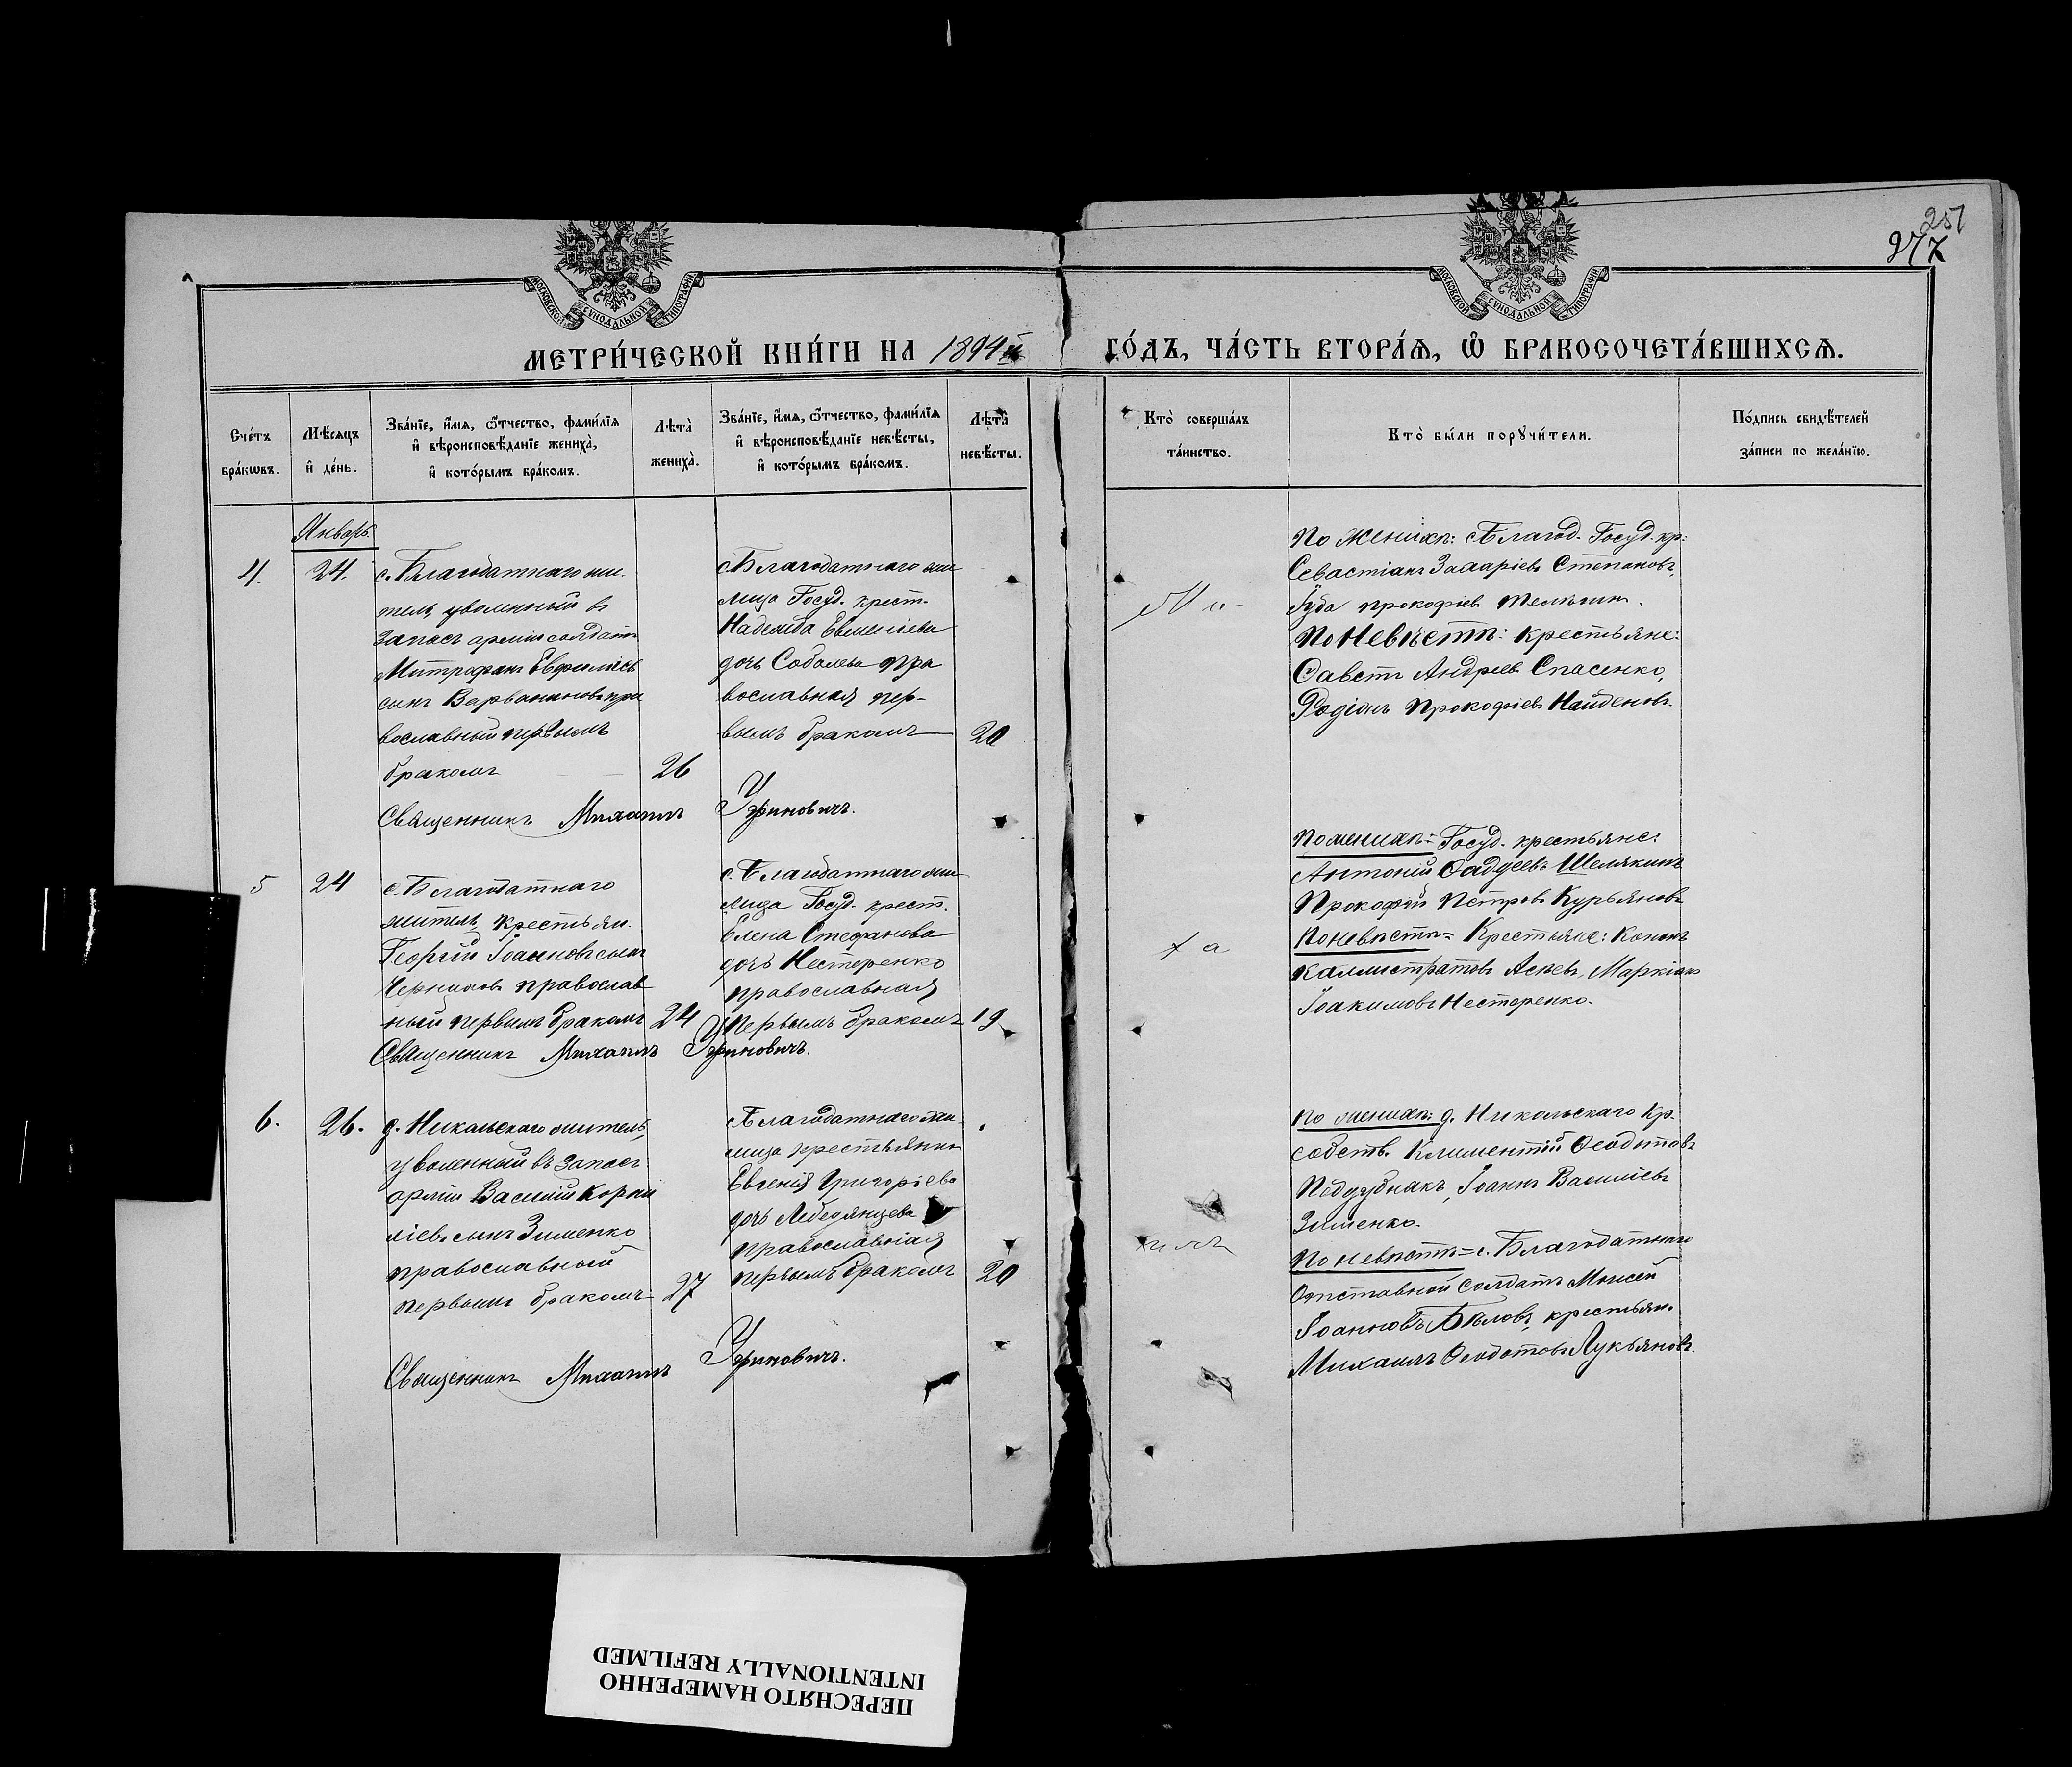 257
277
МОСКОВСКОЙ СѴНОДАЛЬНОЙ ТИПОГРАФІИ
МОСКОВСКОЙ СѴНОДАЛЬНОЙ ТИПОГРАФІИ
МЕТРИ́ЧЕСКОЙ КНИ́ГИ НА 1894 й ГО́ДЪ, ЧА́СТЬ ВТОРА́Ѧ, Ѡ҆ БРАКОСОЧЕТА́ВШИХСѦ.
Сче́тъ бра́кѡвъ.
Мѣ́сяцъ и҆ де́нь.
Зва́нїе, и҆́мѧ, ѻ҆́тчество, фами́лїѧ
и҆ вѣроисповѣ́данїе жениха̀,
и҆ кото́рымъ бра́комъ.
Лѣта̀ жениха̀.
Зва́нїе, и҆́мѧ, ѻ҆́тчество, фами́лїѧ
и҆ вѣроисповѣ́данїе невѣ́сты,
и҆ кото́рымъ бра́комъ.
Лѣта̀ невѣ́сты.
Кто̀ соверша́лъ та́инство.
Кто̀ бы́ли порꙋчи́тели.
По́дпись свидѣ́телей за́писи по жела́нїю.
Январь.
4.
24.
с. Благодатнаго жи-
тель, уволенный в
запасъ арміи солдатъ
Митрофанъ Евфиміевъ
сынъ Варваниновъ пра
вославный первымъ
бракомъ
26
с. Благодатнаго жи
лица Госуд. крест.
Надежда Евменіева
дочь Соболева пра
вославная пер-
вымъ бракомъ
20
Священникъ Михаилъ Уриновичъ.
Ми-
По Женихѣ: с. Благод. Госуд. кр:
Севастіанъ Захаріевъ Степановъ,
Іуда Прокофіевъ
По Невѣстѣ: Крестьяне:
Савватъ Андреевъ Спасенко,
Родіонъ Прокофіевъ Найденовъ.
5
24
с. Благодатнаго
житель, крестьян.
Георгій Іоанновъ сынъ
Черниковъ православ
ный первымъ бракомъ
24
с. Благодатнаго жи
лица Госуд. крест.
Елена Стефанова
дочь Нестеренко
православная
первымъ бракомъ
19
Священникъ Михаилъ Уриновичъ.
ха
По женихѣ: Госуд. крестьяне:
Антоній Фаддеевъ Шелякинъ
Прокофій Петровъ Курьяновъ
По невѣстѣ = Крестьяне: Кононъ
Каллистратовъ Асѣевъ, Маркіанъ
Іоакимовъ Нестеренко.
6.
26.
д. Никольскаго житель,
уволенный въ запасъ
арміи Василій Корни
ліевъ сынъ Зименко
православный
первымъ бракомъ
27
с. Благодатнаго жи
лица крестьянка
Евгенія Григоріева
дочь Лебедянцева
православная
первымъ бракомъ
20
Священникъ Михаилъ Уриновичъ.
илъ
По женихѣ: д. Никольскаго Кр.
собств. Климентій Ѳеодотовъ
Поддубнакъ, Іоаннъ Василіевъ
Зименко.
По невѣстѣ = с. Благодатнаго
Отставной солдатъ Моисей
Іоанновъ Бѣловъ, крестьян.
Михаилъ Ѳеодотовъ Лукьяновъ.
ПЕРЕСНЯТО НАМЕРЕННО
INTENTIONALLY REFILMED